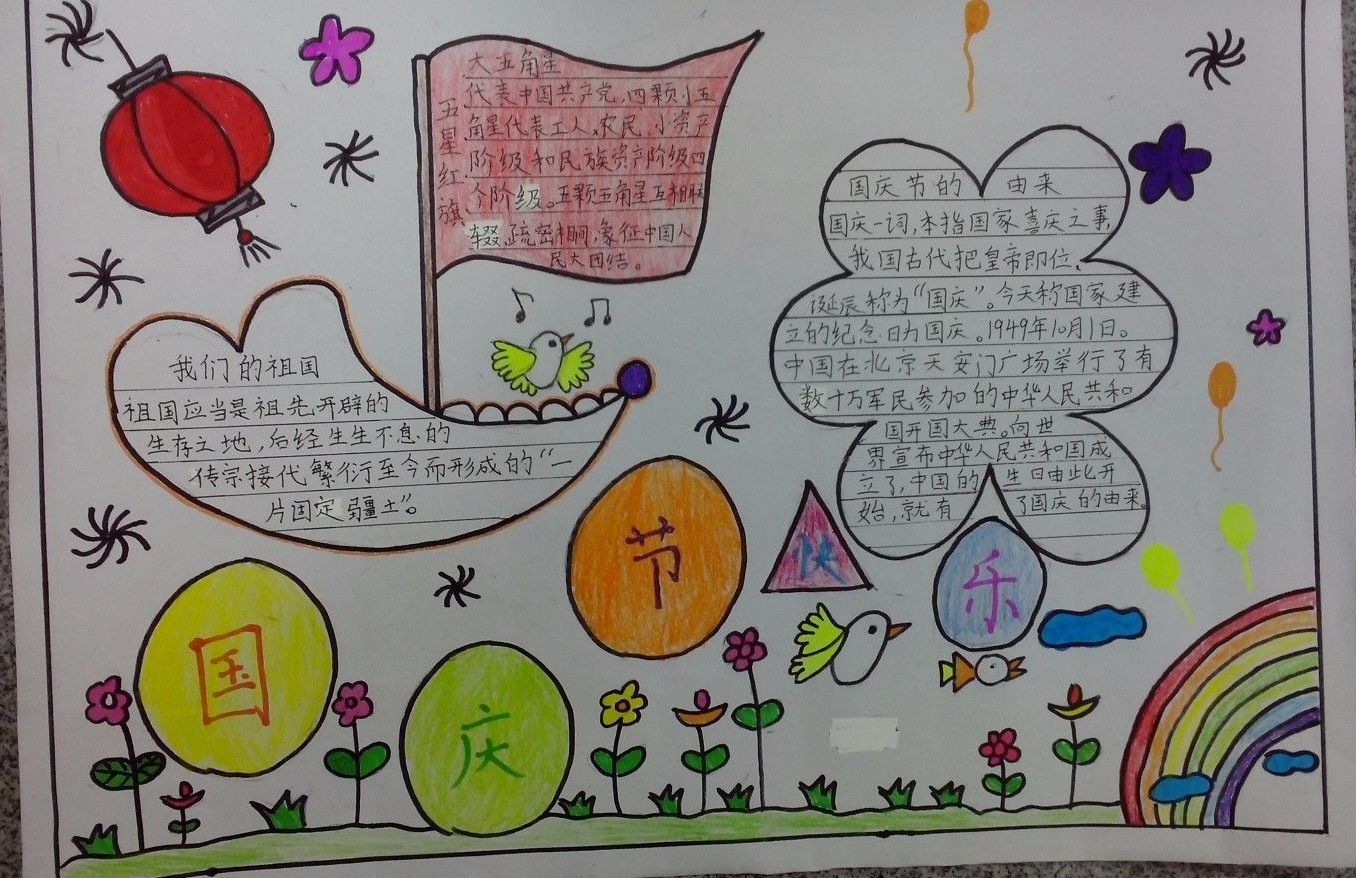 五星红旗
大五角星
代表中国共产党,四颗小五
角星代表工人、农民、小资产
阶级和民族资产阶级四
个阶级。五颗五角星互相联
辍,疏密相间,象征中国人
民大团结。
国庆节的 由来
国庆一词,本指国家喜庆之事,
我国古代把皇帝即位、
诞辰称为“国庆”。今天称国家建
立的纪念日为国庆。1949年10月1日。
中国在北京天安门广场举行了有
数十万军民参加的中华人民共和
国开国大典。向世
界宣布中华人民共和国成
立了,中国的 生日由此开
始,就有 了国庆的由来。
我们的祖国
祖国应当是祖先开辟的
生存之地,后经生生不息的
传宗接代繁衍至今而形成的“一
片固定疆土”。
国
庆
节
快
乐